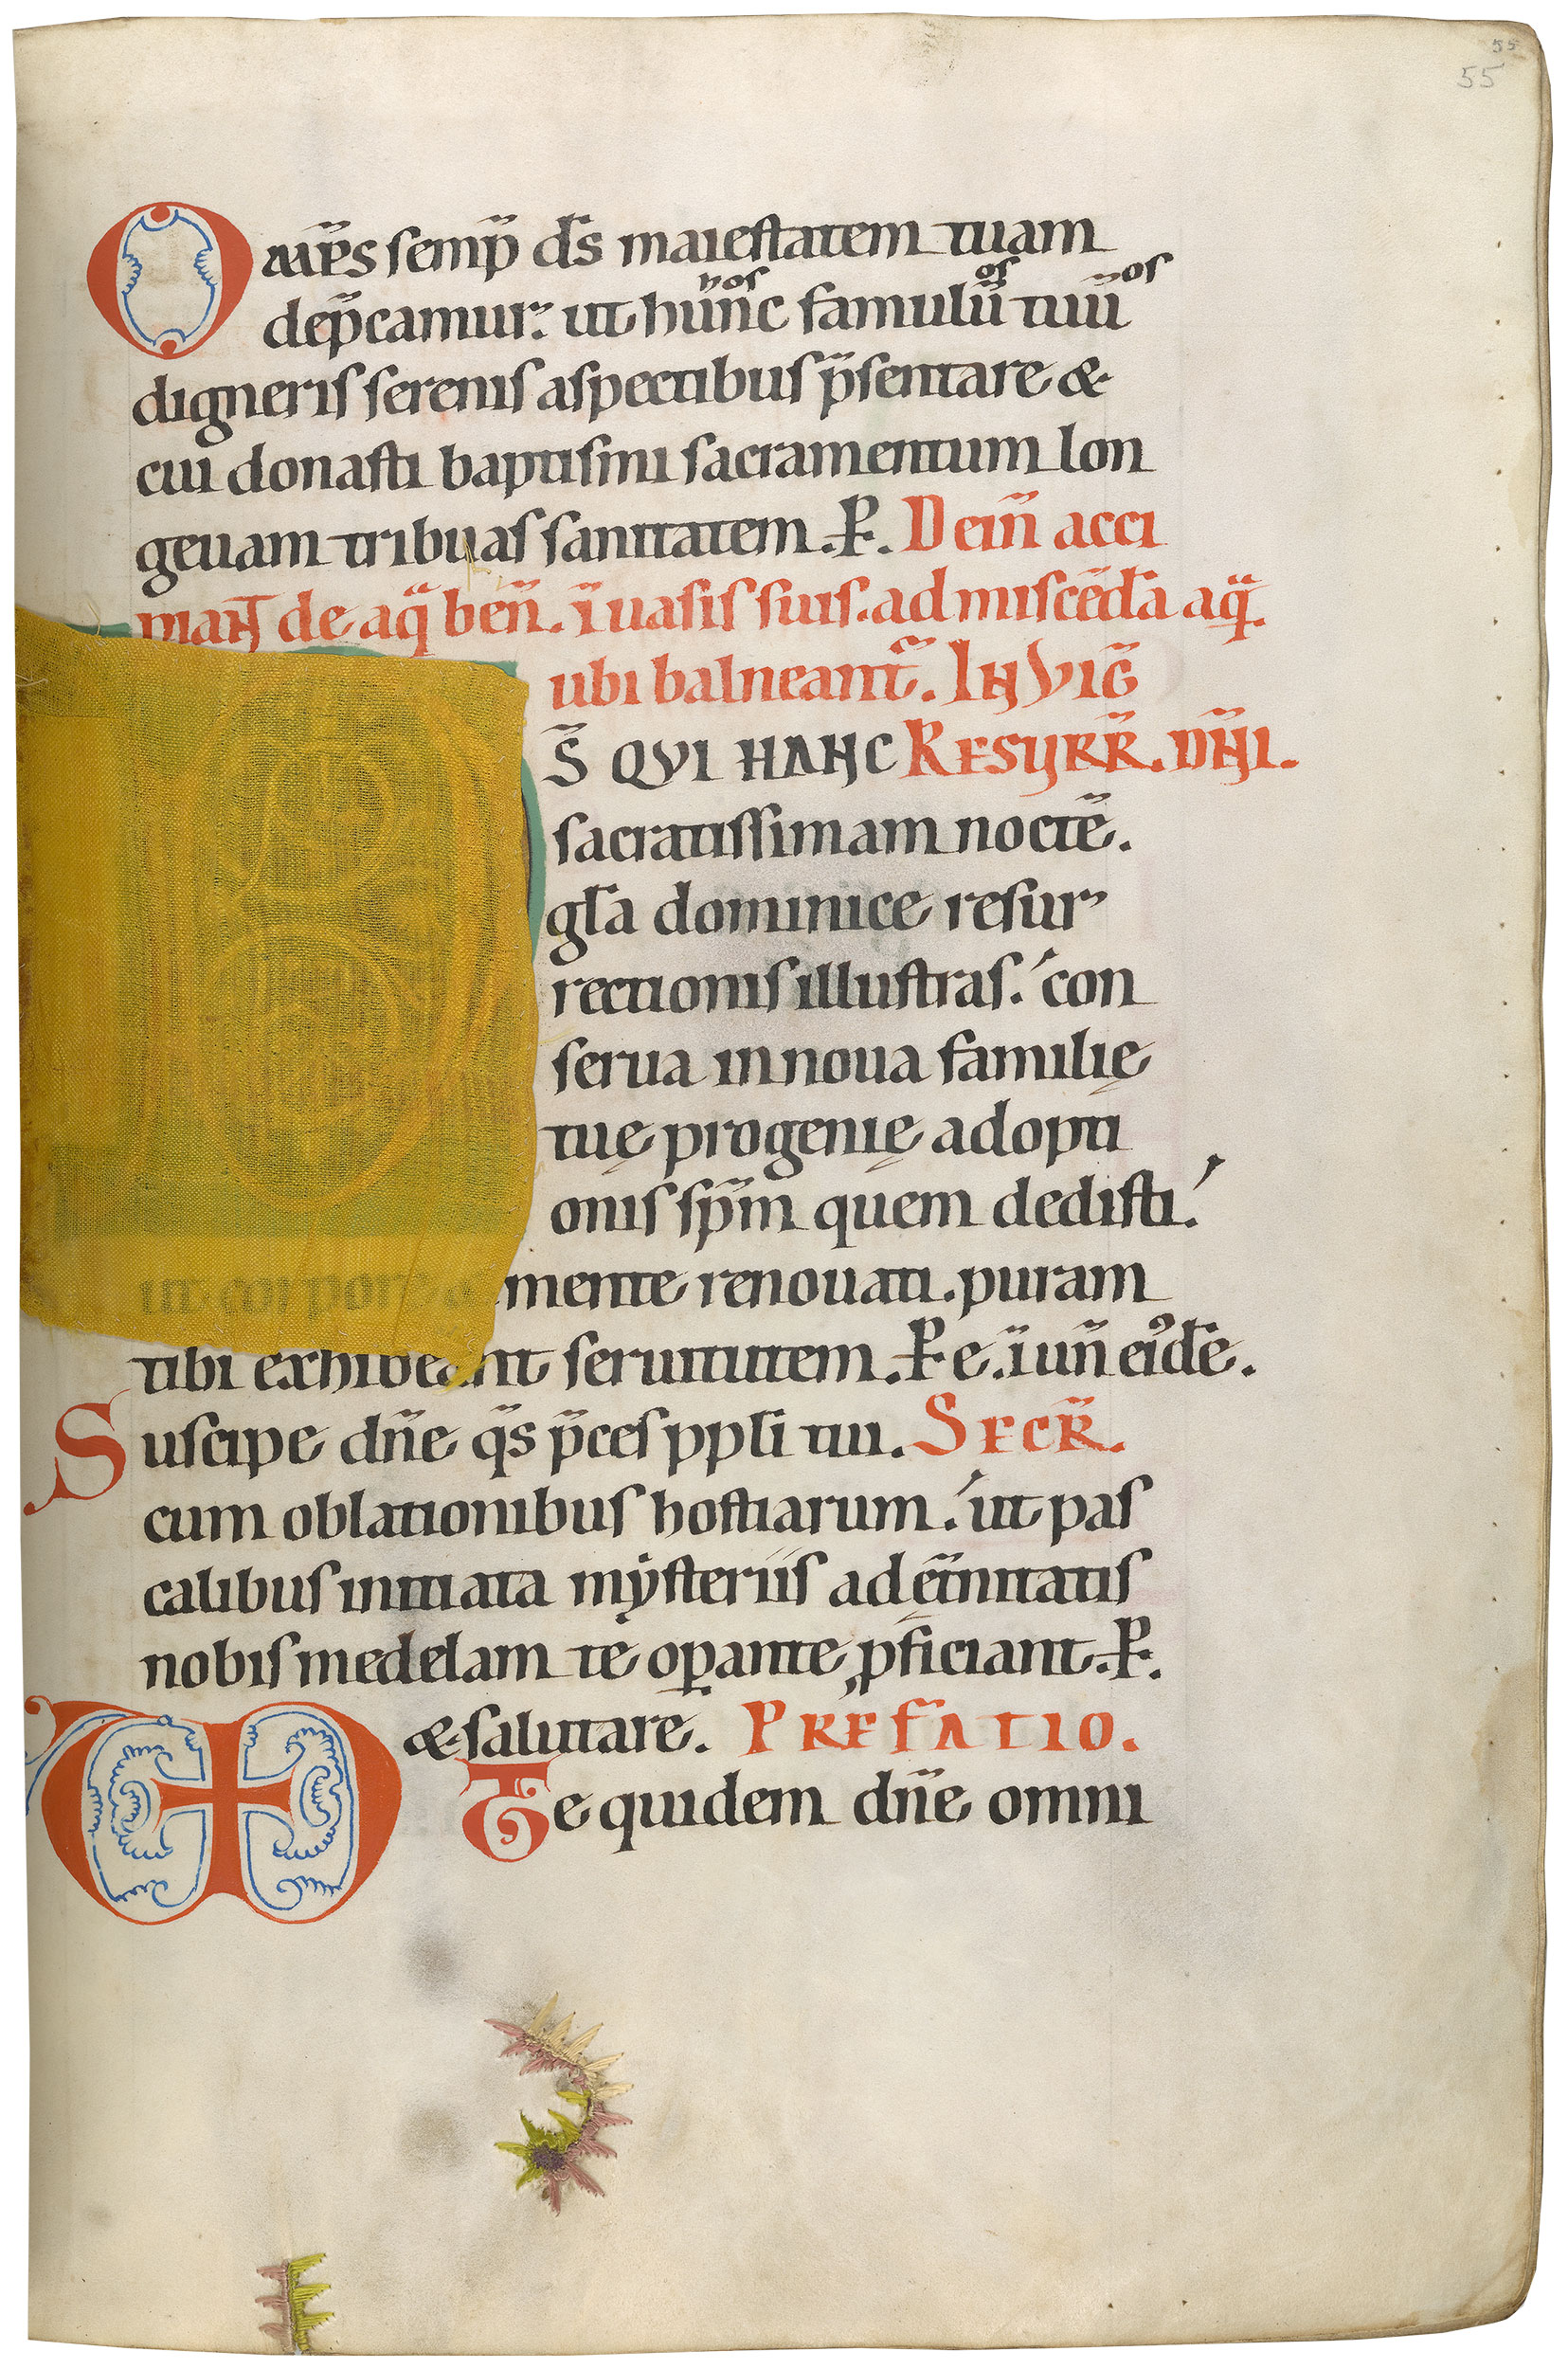 55
55
Om̄ps semp̄ ds̄ maiestatem tuam
dep̄camur. ut hūnc famulū tuū
nos os os
digneris serenis aspectibus p̄sentare &
cui donasti baptismi sacramentum lon
geuam tribuas sanitatem. P. Dein̄ acci
piant de aq̄ ben̄. ī uasis suis. ad miscēdā aq̄.
ubi balneant᷑. IN VIG̅
S̄ QVI HANC RESVRR̄. DN̄I.
sacratissimam noctē.
gl̄a dominice resur
rectionis illustras. con
serua in noua familię
tuę progenię adopti
onis sp̄m quem dedisti.
ut corpore & mente renouati. puram
tibi exhibeant seruitutem. P e. ī un̄ eiꝰdē.
Suscipe dn̄e q̄s p̄ces ppl̄i tui. SECR̄.
cum oblationibus hostiarum. ut pas
calibus initiata mẏsteriis ad ęt̄nitatis
nobis medelam te oꝑante ꝓficiant. P.
& salutare. PREFATIO.
Te quidem dn̄e omni